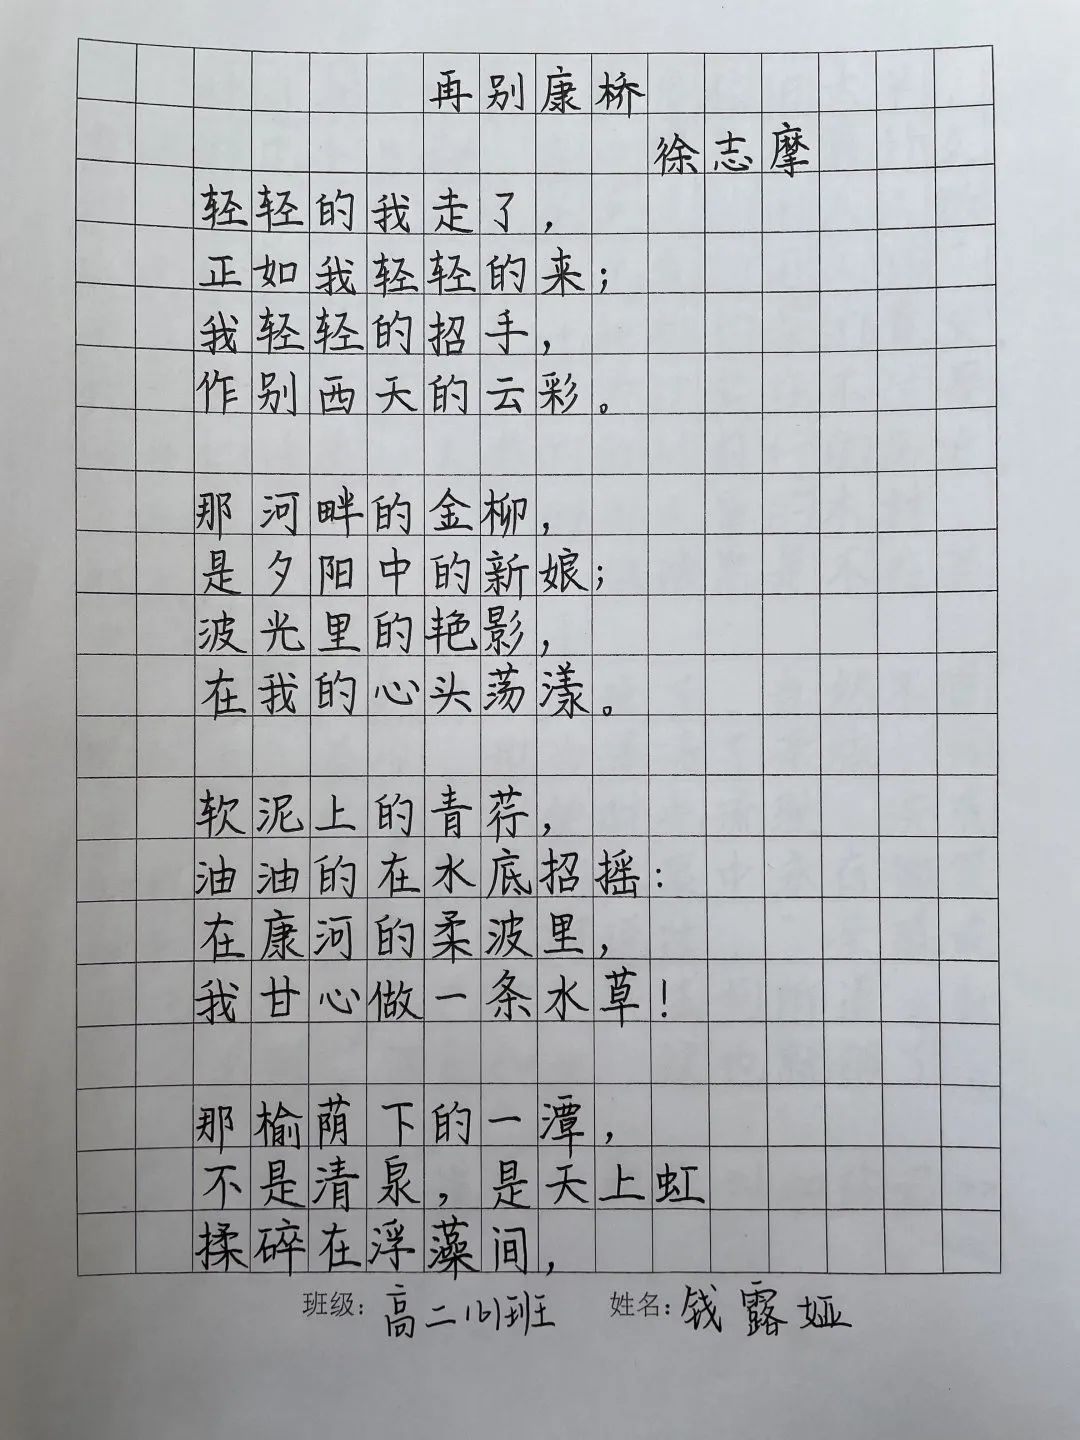 再别康桥
徐志摩
轻轻的我走了，
正如我轻轻的来；
我轻轻的招手，
作别西天的云彩。
那河畔的金柳，
是夕阳中的新娘；
波光里的艳影，
在我的心头荡漾。
软泥上的青荇，
油油的在水底招摇：
在康河的柔波里，
我甘心做一条水草！
那榆荫下的一潭，
不是清泉，是天上虹
揉碎在浮藻间，
班级：高二（6）班 姓名：钱露娅